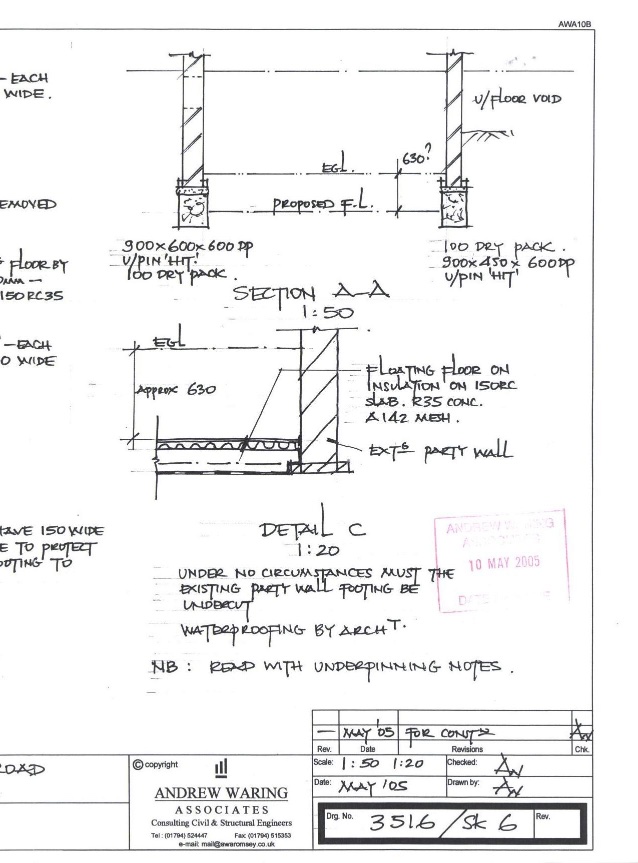 AWA10B
- EACH
WIDE.
U/FLOOR VOID
EGL.
630?
EMOVED
PROPOSED F.L.
900x600x600 DP
U/PIN 'HIT'
100 DRY PACK.
100 DRY PACK.
900x450x600DP
U/PIN 'HIT'
FLOOR BY
150 RC35
SECTION A-A
1:50
- EACH
WIDE
EGL
APPROX 630
FLOATING FLOOR ON
INSULATION ON 150RC
SLAB. R35 CONC.
A142 MESH.
EXTG PARTY WALL
HAVE 150 WIDE
E TO PROTECT
OOTING TO
DETAIL C
1:20
ANDREW WARING
10 MAY 2005
UNDER NO CIRCUMSTANCES MUST THE
EXISTING PARTY WALL FOOTING BE
UNDERCUT
WATERPROOFING BY ARCHT.
NB: READ WITH UNDERPINNING NOTES.
- MAY '05 FOR CONSTN AW
Rev. Date Revisions Chk.
OAD
© copyright
ANDREW WARING
ASSOCIATES
Consulting Civil & Structural Engineers
Tel: (01794) 524447 Fax: (01794) 515353
e-mail: mail@awaromsey.co.uk
Scale: 1:50 1:20 Checked: AW
Date: MAY '05 Drawn by: AW
Drg. No. 3516/SK 6 Rev.